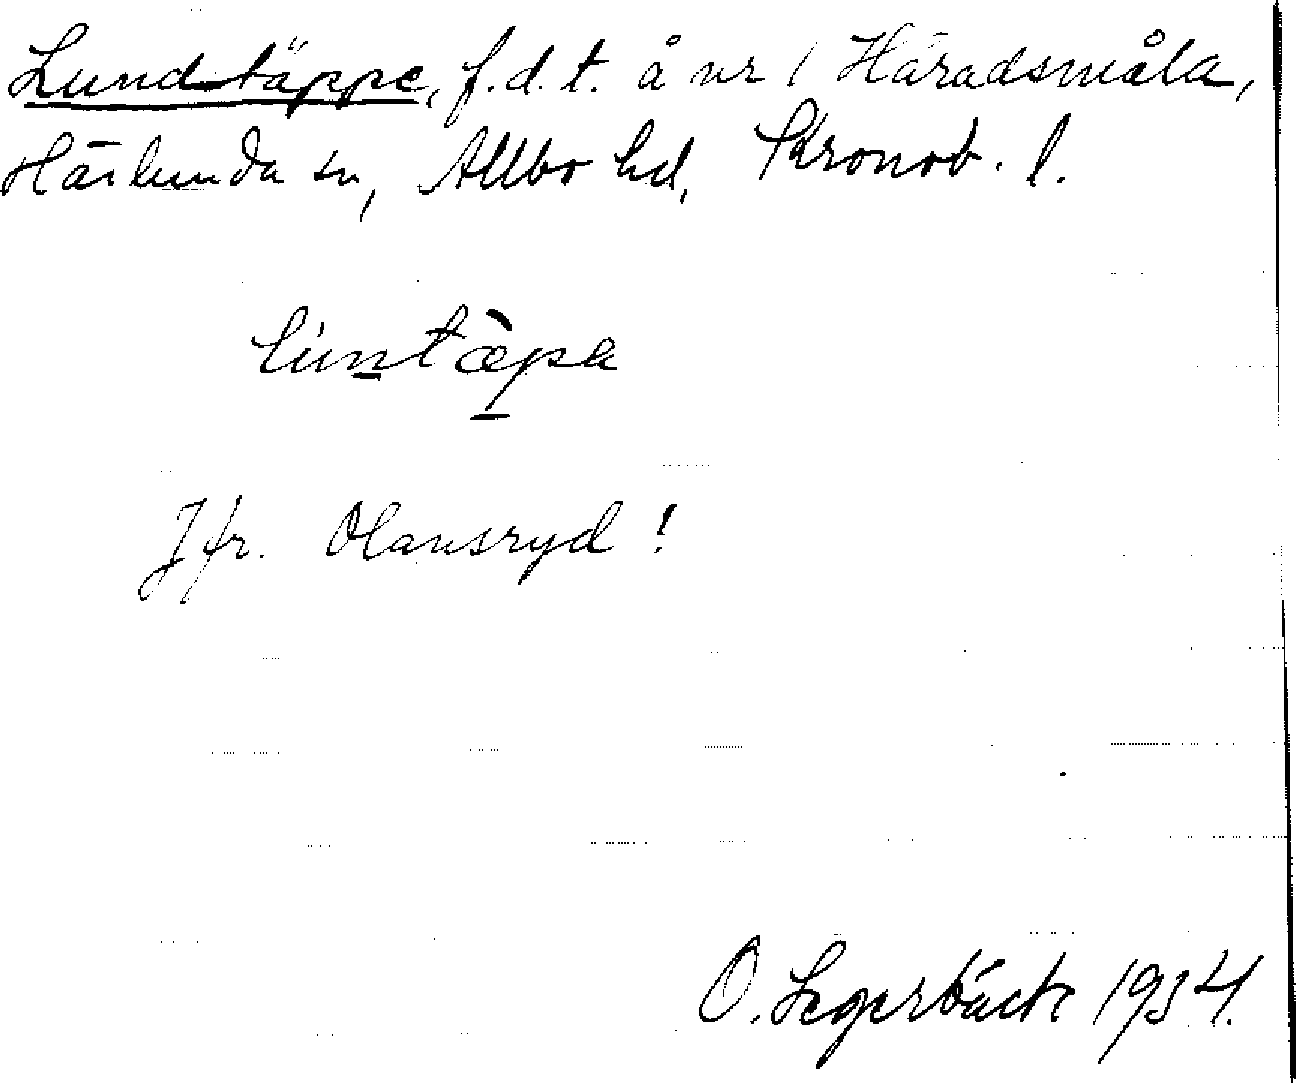 Lundtäppe, f.d.t. å nr 1 Häradsmåla,
Härlunda sn, Allbo hd, Kronob. l.
lúntæ̀pa
Jfr. Olansryd!
O. Segerbäck 1934.